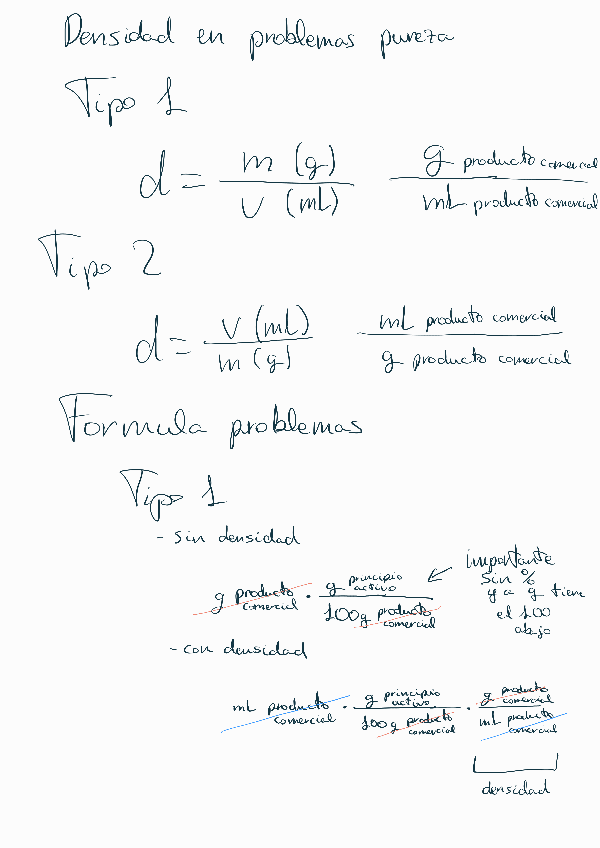 Densidad en problemas pureza
Tipo 1
d = m (g) / v (mL) g producto comercial / mL producto comercial
Tipo 2
d = v (mL) / m (g) mL producto comercial / g producto comercial
Formula problemas
Tipo 1
- Sin densidad
g producto comercial · g principio activo / 100g producto comercial
importante
Sin %
ya q tiene
el 100
abajo
- con densidad
mL producto comercial · g principio activo / 100 g producto comercial · g producto comercial / mL producto comercial
densidad